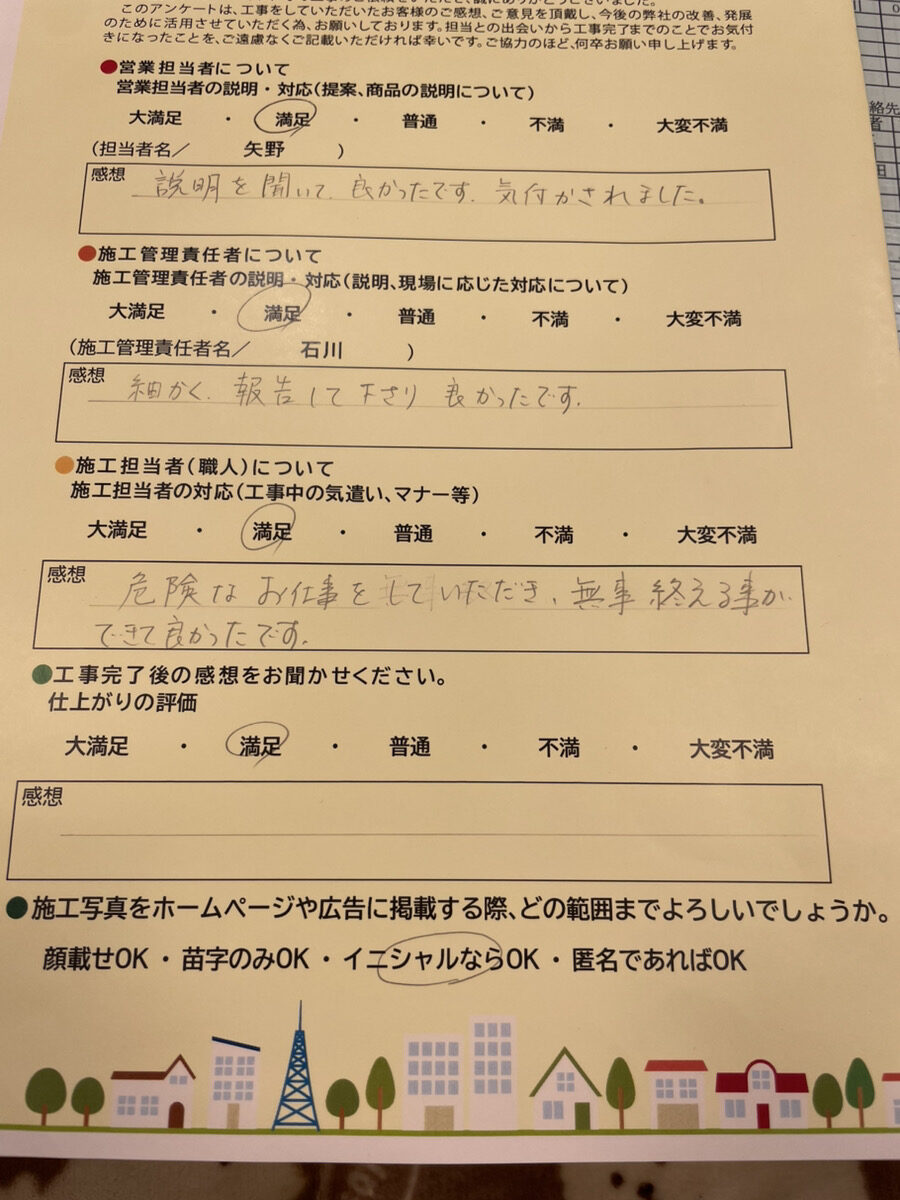 このアンケートは、工事をしていただいたお客様のご感想、ご意見を頂戴し、今後の弊社の改善、発展
のために活用させていただく為、お願いしております。担当との出会いから工事完了までのことでお気付
きになったことを、ご遠慮なくご記載いただければ幸いです。ご協力のほど、何卒お願い申し上げます。
●営業担当者について
営業担当者の説明・対応(提案、商品の説明について)
大満足 ・ 満足 ・ 普通 ・ 不満 ・ 大変不満
(担当者名/ 矢野 )
感想 説明を聞いて、良かったです。気付かされました。
●施工管理責任者について
施工管理責任者の説明・対応(説明、現場に応じた対応について)
大満足 ・ 満足 ・ 普通 ・ 不満 ・ 大変不満
(施工管理責任者名/ 石川 )
感想 細かく、報告して下さり 良かったです。
●施工担当者(職人)について
施工担当者の対応(工事中の気遣い、マナー等)
大満足 ・ 満足 ・ 普通 ・ 不満 ・ 大変不満
感想 危険なお仕事をしていただき、無事終える事が
できて良かったです。
●工事完了後の感想をお聞かせください。
仕上がりの評価
大満足 ・ 満足 ・ 普通 ・ 不満 ・ 大変不満
感想
●施工写真をホームページや広告に掲載する際、どの範囲までよろしいでしょうか。
顔載せOK・苗字のみOK・イニシャルならOK・匿名であればOK
絡先
者